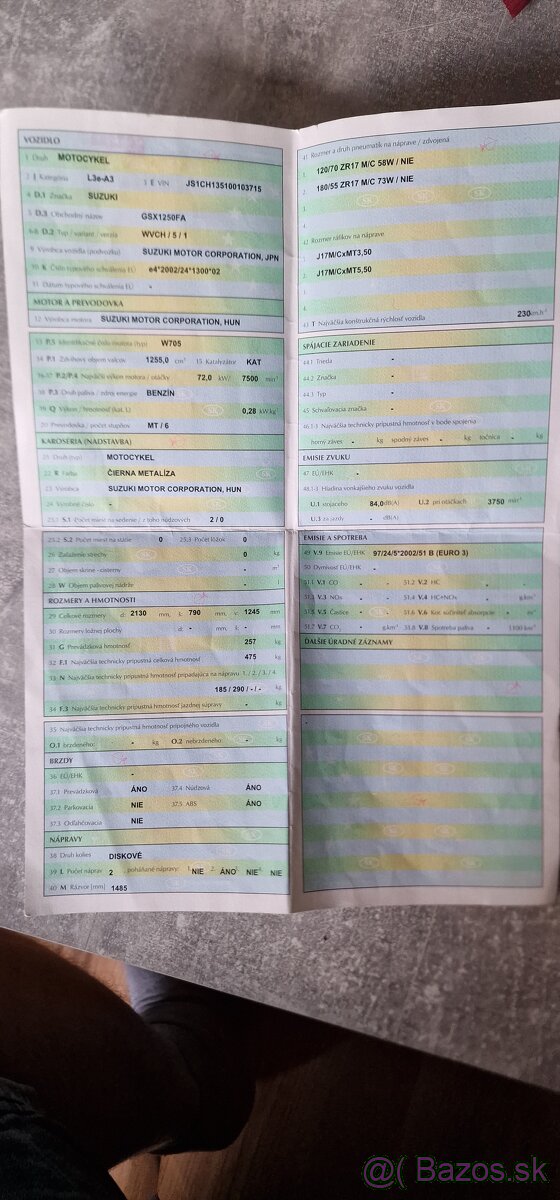 VOZIDLO
1 Druh MOTOCYKEL
2 J Kategória L3e-A3 3 E VIN JS1CH135100103715
4 D.1 Značka SUZUKI
5 D.3 Obchodný názov GSX1250FA
6-8 D.2 Typ / variant / verzia WVCH / 5 / 1
9 Výrobca vozidla (podvozku) SUZUKI MOTOR CORPORATION, JPN
10 K Číslo typového schválenia EÚ e4*2002/24*1300*02
11 Dátum typového schválenia EÚ -
MOTOR A PREVODOVKA
12 Výrobca motora SUZUKI MOTOR CORPORATION, HUN
13 P.5 Identifikačné číslo motora (typ) W705
14 P.1 Zdvihový objem valcov 1255,0 cm³ 15 Katalyzátor KAT
16-17 P.2/P.4 Najväčší výkon motora / otáčky 72,0 kW/ 7500 min-1
18 P.3 Druh paliva / zdroj energie BENZÍN
19 Q Výkon / hmotnosť (kat. L) 0,28 kW.kg-1
20 Prevodovka / počet stupňov MT / 6
KAROSÉRIA (NADSTAVBA)
21 Druh (typ) MOTOCYKEL
22 R Farba ČIERNA METALÍZA
23 Výrobca SUZUKI MOTOR CORPORATION, HUN
24 Výrobné číslo -
25.1 S.1 Počet miest na sedenie / z toho núdzových 2 / 0
25.2 S.2 Počet miest na státie 0 25.3 Počet lôžok 0
26 Zaťaženie strechy 0 kg
27 Objem skrine - cisterny - m³
28 W Objem palivovej nádrže - l
ROZMERY A HMOTNOSTI
29 Celkové rozmery d: 2130 mm, š: 790 mm, v: 1245 mm
30 Rozmery ložnej plochy d: - mm, š: - mm
31 G Prevádzková hmotnosť 257 kg
32 F.1 Najväčšia technicky prípustná celková hmotnosť 475 kg
33 N Najväčšia technicky prípustná hmotnosť pripadajúca na nápravu 1. / 2. / 3. / 4.
185 / 290 / - / - kg
34 F.3 Najväčšia technicky prípustná hmotnosť jazdnej súpravy - kg
35 Najväčšia technicky prípustná hmotnosť prípojného vozidla
O.1 brzdeného: - kg O.2 nebrzdeného: - kg
BRZDY
36 EÚ/EHK -
37.1 Prevádzková ÁNO 37.4 Núdzová ÁNO
37.2 Parkovacia NIE 37.5 ABS ÁNO
37.3 Odľahčovacia NIE
NÁPRAVY
38 Druh kolies DISKOVÉ
39 L Počet náprav 2 , poháňané nápravy: 1. NIE 2. ÁNO 3. NIE 4. NIE
40 M Rázvor [mm] 1485
41 Rozmer a druh pneumatík na náprave / zdvojená
1. 120/70 ZR17 M/C 58W / NIE
2. 180/55 ZR17 M/C 73W / NIE
3.
4.
42 Rozmer ráfikov na náprave
1. J17M/CxMT3,50
2. J17M/CxMT5,50
3.
4.
43 T Najväčšia konštrukčná rýchlosť vozidla 230 km.h-1
SPÁJACIE ZARIADENIE
44.1 Trieda -
44.2 Značka -
44.3 Typ -
45 Schvaľovacia značka -
46.1-3 Najväčšia technicky prípustná hmotnosť v bode spojenia
horný záves - kg spodný záves - kg točnica - kg
EMISIE ZVUKU
47 EÚ/EHK -
48.1-3 Hladina vonkajšieho zvuku vozidla
U.1 stojaceho 84,0 dB(A) U.2 pri otáčkach 3750 min-1
U.3 za jazdy - dB(A)
EMISIE A SPOTREBA
49 V.9 Emisie EÚ/EHK 97/24/5*2002/51 B (EURO 3)
50 Dymivosť EÚ/EHK -
51.1 V.1 CO - 51.2 V.2 HC -
51.3 V.3 NOx - 51.4 V.4 HC+NOx - g.km-1
51.5 V.5 Častice - 51.6 V.6 Kor. súčiniteľ absorpcie - m-1
51.7 V.7 CO2 - g.km-1 51.8 V.8 Spotreba paliva - l.100 km-1
ĎALŠIE ÚRADNÉ ZÁZNAMY
-
@( Bazos.sk